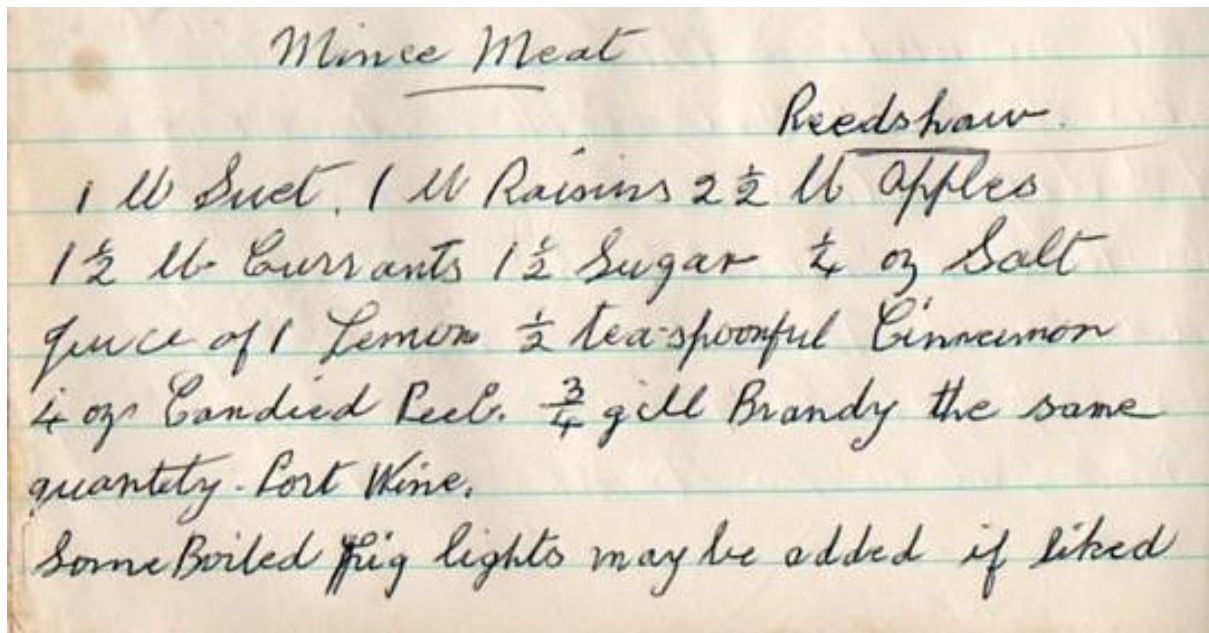 Mince Meat
Reedshaw.
1 lb Suet. 1 lb Raisins 2 ½ lb apples
1 ½ lb. Currants 1 ½ Sugar ¼ oz Salt
juice of 1 Lemon ½ tea-spoonful Cinnamon
4 ozs Candied Peel. ¾ gill Brandy the same
quantity. Port Wine.
Some Boiled Pig lights may be added if liked